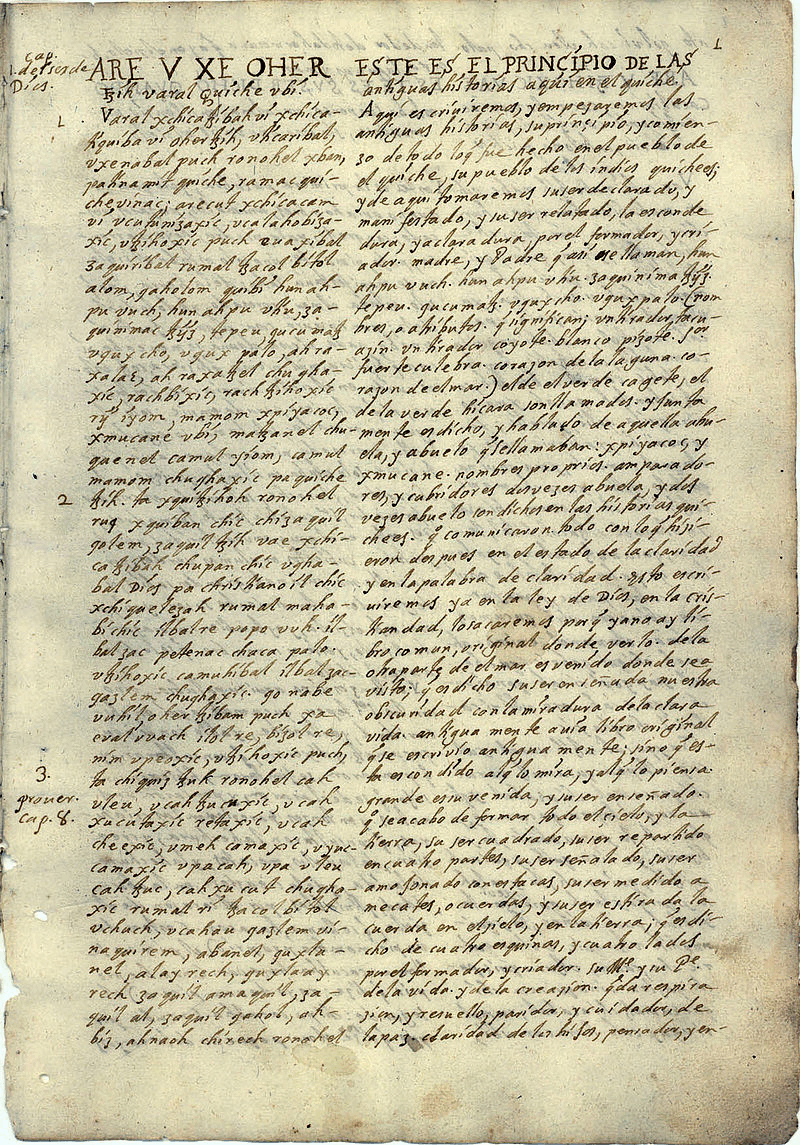 1
Cap.
1. del ser de
Dios.
ARE V XE OHER
tzih varal Quiche vbi.
1
Varal xchicatzibah vi xchica-
tiquiba vi oher tzih, vticaribal,
vxenabal puch ronohel xban,
pa tinamit quiche, ramac qui-
che vinac; arecut xchicacam
vi vcutunizaxic, vcalahobiza-
xic, vtzihoxic puch euaxibal
zaquiribal rumal tzacol bitol
alom, qaholom quibi hun ah-
pu vuch, hun ahpu vtiu, za-
quinimac tzyz, tepeu, qucumatz
vqux cho, vqux palo, ah ra-
xa la3, ah raxa tzel chugha-
xic, rachbixic, rachtzihoxic
ri iyom, mamom xpiyacoc,
xmucane vbi, matzanel chu-
quenel camul yiom, camul
mamom chughaxic pa quiche
2
tzih. ta xquitzihoh ronohel
ruq xquiban chic chi zaquil
qolem, zaquil tzih vae xchi-
catzibah chupan chic vgha-
bal Dios pa christianoil chic
xchiquelezah rumal maha-
bi chic ilbal re popo vuh. il-
bal zac petenac chaca palo.
vtzihoxic camuhibal ilbal zac-
qazlem chughaxic. qo nabe
vuhil, oher tzibam puch xa
eval vvach ilol re, bizol re,
nim vpeoxic, vtzihoxic puch,
3.
prouer.
cap. 8.
ta chiquiz tzuk ronohel cah
vleu, vcah tzucuxic, vcah
xucutaxic retaxic, vcah
cheexic, vmeh camaxic, vyuc
camaxic vpa cah, vpa vleu
cah tzuc, cah xucut chugha-
xic rumal ri tzacol bitol
vchuch, vcahau qazlem vi-
naquirem, abanel, quxla-
nel, alay rech, quxlaay
rech zaquil amaquil, za-
quil al, zaquil qahol, ah-
biz, ahnaoh chirech ronohel
ESTE ES EL PRINCIPIO DE LAS
antiguas historias aqui en el quiche.
Aqui escriuiremos, y empesaremos las
antiguas historias, su prinsipio, y comien-
zo de todo lo q̃ fue hecho en el pueblo de
el quiche, su pueblo de los indios quichees;
y de aqui tomaremos su ser declarado, y
manifestado, y su ser relatado, la esconde
dura, y aclaradura, por el formador, y cri-
ador. madre, y Padre q̃ ansi se llaman, hun
ahpu vuch. hun ahpu vtiu. zaquinima tzyz.
tepeu. qucumatz. vqux cho. vqux palo. (nom
bres, o atributos. q̃ significan; vn tirador tacu-
azin. vn tirador coyote. blanco pizote. sor
fuerte culebra. corazon de la laguna. co-
razon de el mar.) el de el verde cagete, el
de la verde hicara son llamados. y junta
mente es dicho, y hablado de aquella abu-
ela, y abuelo q̃ se llamaban: xpiyacoc, y
xmucane. nombres proprios. amparado-
res, y cubridores dos vezes abuela, y dos
vezes abuelo son dichos en las historias qui-
chees. q̃ comunicaron todo con lo q̃ hizi-
eron despues en el estado de la claridad
y en la palabra de claridad. Esto escri-
uiremos ya en la ley de Dios, en la cris-
tiandad, lo sacaremos porq̃ ya no ay li-
bro comun, original donde verlo. de la
otra parte de el mar es venido donde se a
visto; q̃ es dicho su ser enseñada nuestra
obscuridad con la miradura de la clara
vida. antiguamente auia libro original
q̃ se escrivio antiguamente; sino q̃ es-
ta escondido al q̃ lo mira, y al q̃ lo piensa.
grande es su venida, y su ser enseñado.
q̃ se acabo de formar todo el cielo, y la
tierra, su ser cuadrado, su ser repartido
en cuatro partes, su ser señalado, su ser
amojonado con estacas, su ser medido a
mecates, o cuerdas, y su ser estirada la
cuerda en el zielo, y en la tierra; q̃ es di-
cho de cuatro esquinas, y cuatro lados
por el formador, y criador. su Me. y su Pe.
de la vida. y de la creazion. q̃ da respira
zion, y resuello, paridor, y cuidador, de
la paz. claridad de los hijos, pensador, y en-